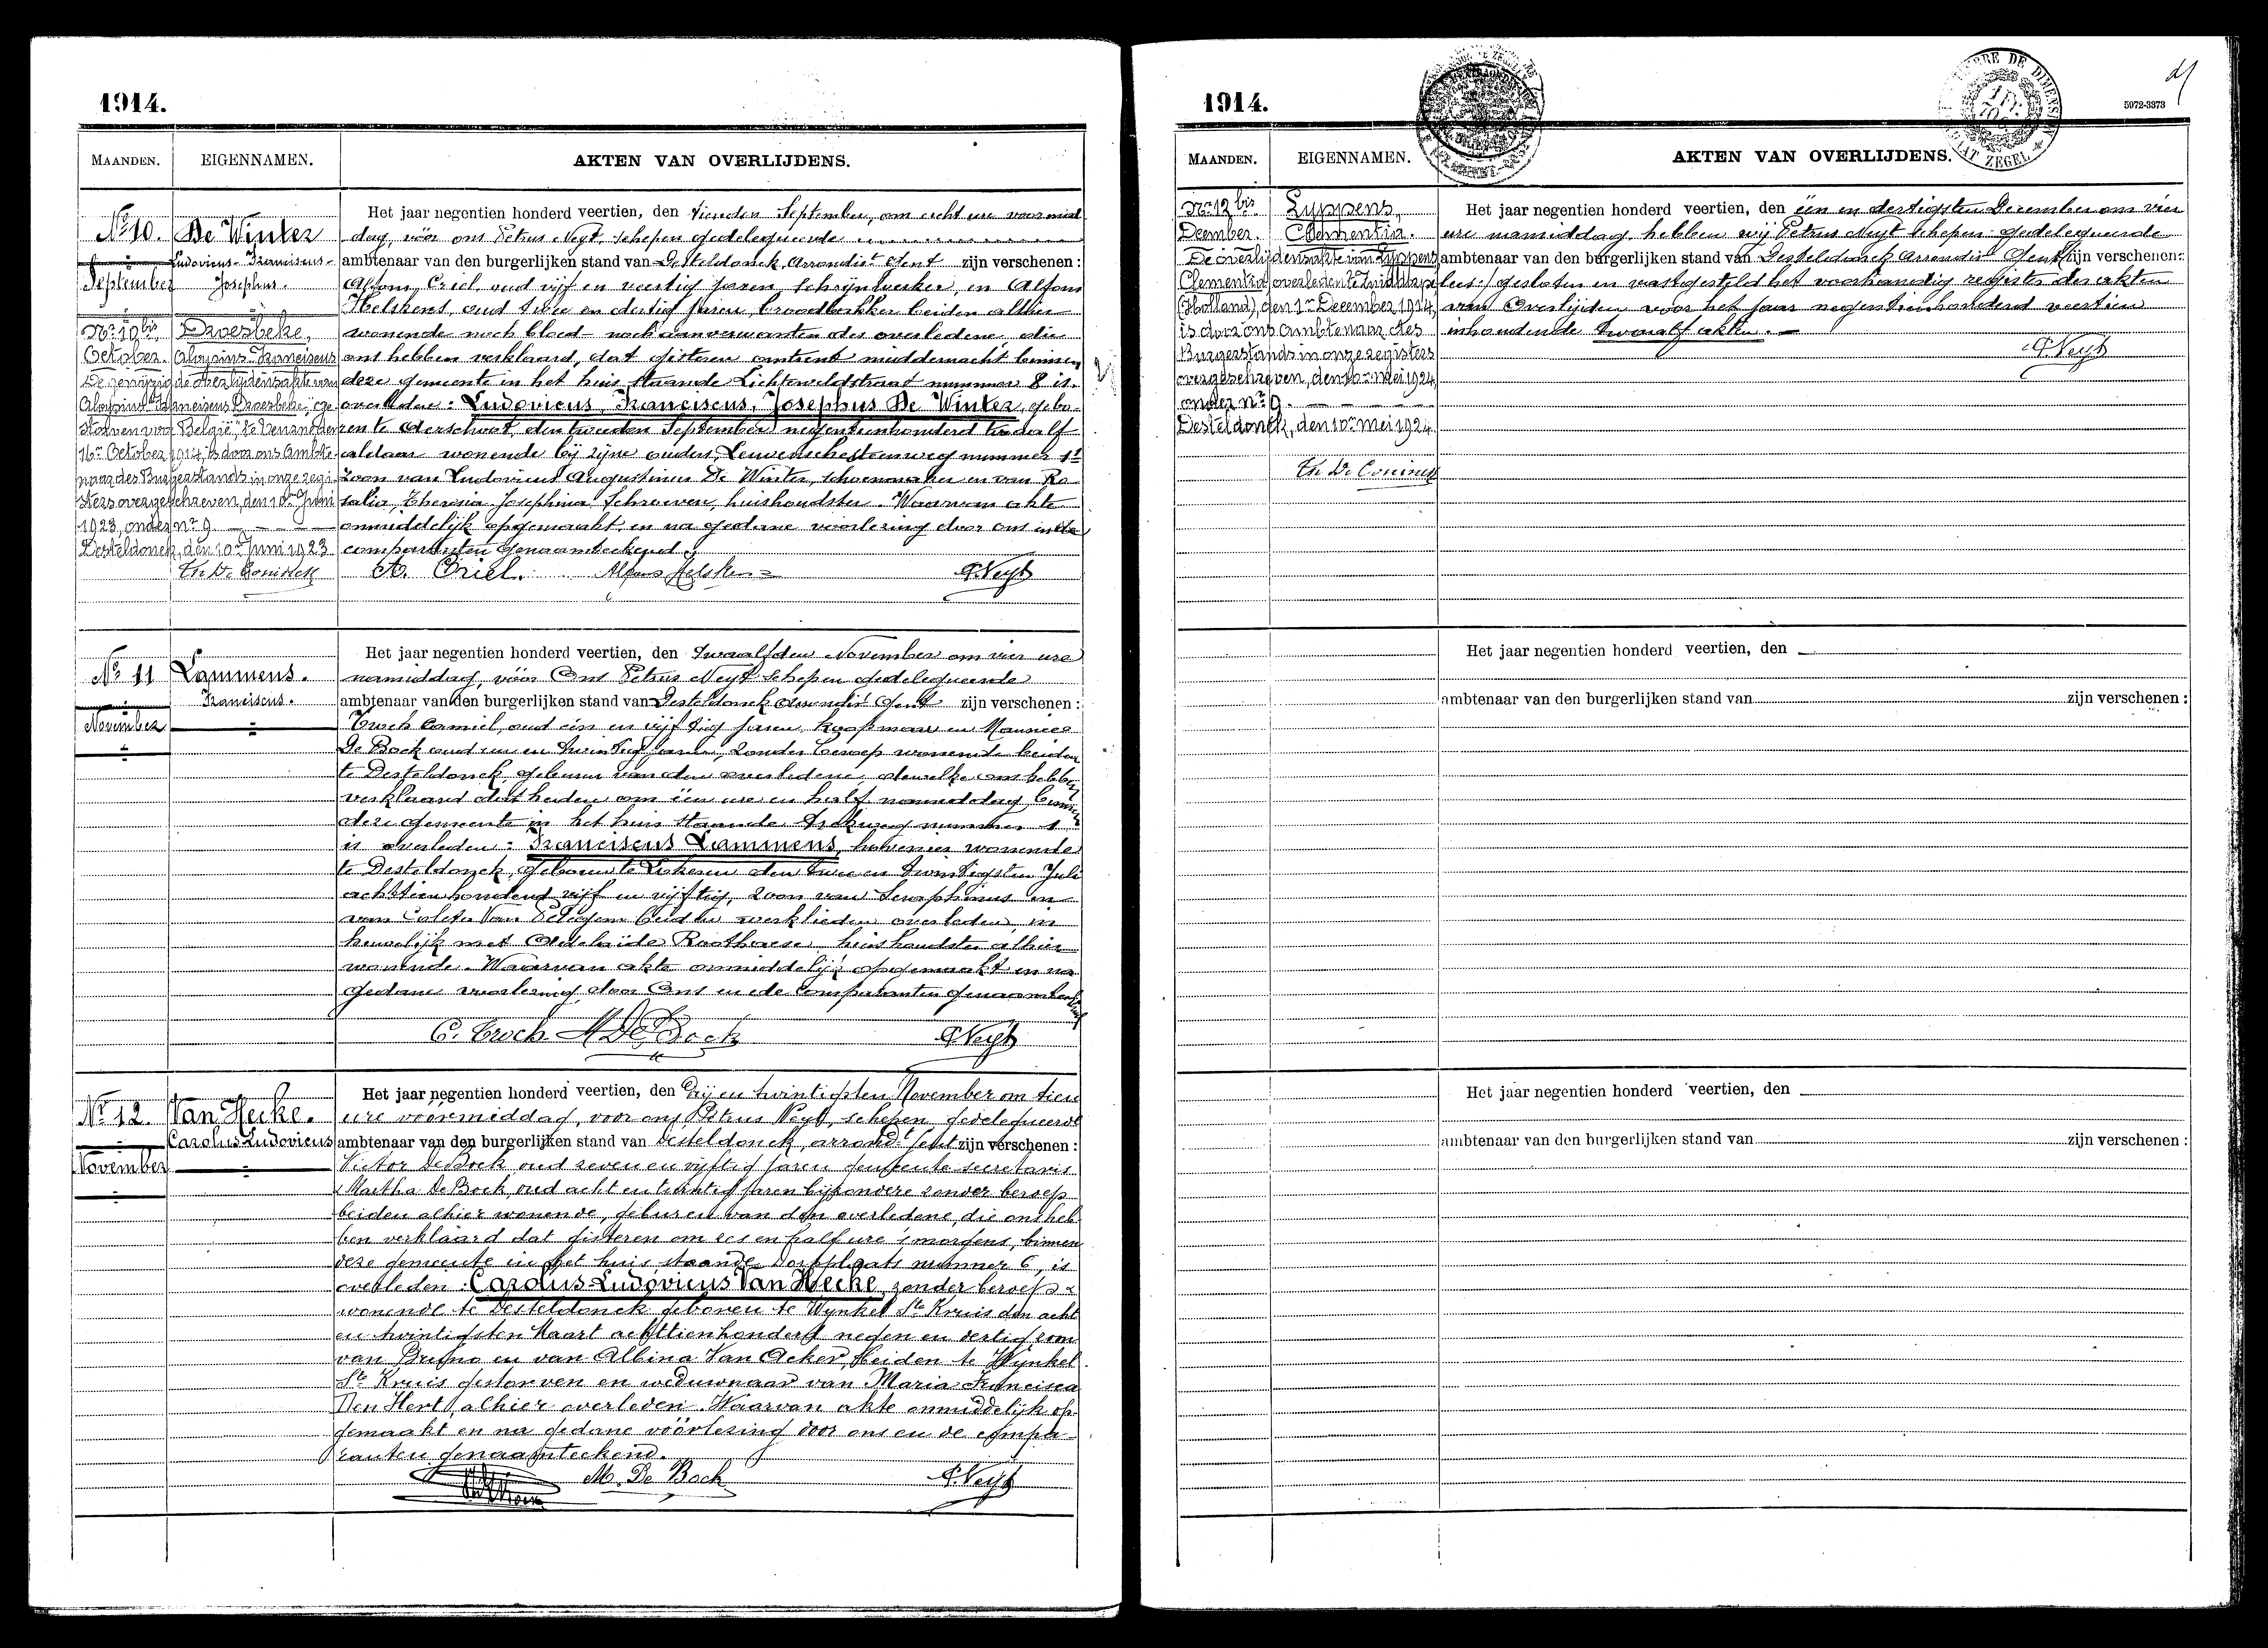 1914.
MAANDEN. EIGENNAMEN. AKTEN VAN OVERLIJDENS.
No 10. De Winter
Ludovicus-Franciscus-
Josephus.
September
Het jaar negentien honderd veertien, den tienden September, om acht ure voormid
dag, vóór ons Petrus Neyt, schepen gedelegueerde
ambtenaar van den burgerlijken stand van Desteldonck, Arrondist Gent zijn verschenen:
Alfons Criel, oud vijf en veertig jaren, schrijnwerker, en Alfons
Helskens, oud twee en dertig jaren, broodbakker beiden alhier
wonende noch bloed- noch aanverwanten des overledene, die
ons hebben verklaard, dat gisteren omtrent middernacht binnen
deze gemeente in het huis staande Lichtveldstraat nummer 8 is
overleden: Ludovicus, Franciscus, Josephus De Winter, gebo-
ren te Aerschot, den tweeden September negentienhonderd twaalf
aldaar wonende bij zijne ouders, Leuvenschesteenweg nummer
zoon van Ludovicus Augustinus De Winter, schoenmaker en van Ro-
salia, Theresia Josephina Schroeven, huishoudster. Waarvan akte
onmiddelijk opgemaakt, en na gedane voorlezing door ons en de
comparanten genaamteekend.
A. Criel. Alfons Helskens P. Neyt
No 10 bis Droesbeke,
October. Aloysius-Franciscus
De gewijzigde Overlijdensakte van
Aloysius Franciscus Droesbeke, ge-
storven voor België, te
16en October 1914, is door ons Ambte-
naar des Burgerstands in onze regi-
sters overgeschreven, den 10en Juni
1923, onder nr 9.
Desteldonck, den 10en Juni 1923
Th. De Coninck
No 11 Lammens.
Franciscus.
November
Het jaar negentien honderd veertien, den twaalfden November om vier ure
namiddag, vóór Ons Petrus Neyt schepen gedelegueerde
ambtenaar van den burgerlijken stand van Desteldonck Arrondist Gent zijn verschenen:
Troch Camiel, oud één en vijftig jaren, koopman en Maurice
De Bock oud een en twintig jaren, zonder beroep wonende beiden
te Desteldonck, geburen van den overledene, dewelke ons hebben
verklaard dat heden om één ure en half namiddag binnen
deze gemeente in het huis staande nummer 1
is overleden: Franciscus Lammens, hovenier wonende
te Desteldonck, geboren te Lokeren den twee en twintigsten Juli
achttienhonderd vijf en vijftig, zoon van Seraphinus en
van Coleta Van Petegem beiden werklieden overleden, in
huwelijk met Adelaïde Roothaese huishoudster alhier
wonende. Waarvan akte onmiddelijk opgemaakt en na
gedane voorlezing, door Ons en de Comparanten genaamteekend
C. Troch M De Bock P. Neyt
No 12. Van Hecke.
Carolus Ludovicus
November
Het jaar negentien honderd veertien, den Drij en twintigsten November om tien
ure voormiddag, voor ons Petrus Neyt, schepen gedelegueerde
ambtenaar van den burgerlijken stand van Desteldonck, arrondt Gent zijn verschenen:
Victor De Bock oud zeven en vijftig jaren gemeente-secretaris
& Martha De Bock, oud acht en twintig jaren bijzondere zonder beroep
beiden alhier wonende, geburen van den overledene, die ons heb-
ben verklaard dat gisteren om zes en half ure 's morgens, binnen
deze gemeente in het huis staande Dorpplaats nummer 6, is
overleden: Carolus-Ludovicus Van Hecke, zonder beroep
wonende te Desteldonck geboren te Wynkel Ste Kruis den acht
en twintigsten Maart achttienhonderd negen en dertig, zoon
van Bruno en van Albina Van Acker, beiden te Wynkel
Ste Kruis gestorven en weduwnaar van Maria Francisca
Den Hert, alhier overleden. Waarvan akte onmiddelijk op-
gemaakt en na gedane vóórlezing door ons en de compa-
ranten genaamteekend.
M. De Bock P. Neyt
1914.
5972-3373
MAANDEN. EIGENNAMEN. AKTEN VAN OVERLIJDENS.
Nr 12 bis Lyppens,
December. Clementia.
De overlijdensakte van Lyppens
Clementia, overleden te Zuiddorpe
(Holland), den 1en December 1914,
is door ons Ambtenaar des
Burgerstands in onze registers
overgeschreven, den 10en Mei 1924
onder nr 9.
Desteldonck, den 10en Mei 1924.
Th. De Coninck
Het jaar negentien honderd veertien, den één en dertigsten December om vier
ure namiddag hebben wij Petrus Neyt schepen gedelegueerde
ambtenaar van den burgerlijken stand van Desteldonck Arrondist Gent zijn verschenen:
lees:/ gesloten en vastgesteld het voorhandig register der akten
van Overlijden voor het jaar negentienhonderd veertien
inhoudende twaalf akten.
P. Neyt
Het jaar negentien honderd veertien, den
ambtenaar van den burgerlijken stand van zijn verschenen:
Het jaar negentien honderd veertien, den
ambtenaar van den burgerlijken stand van zijn verschenen: